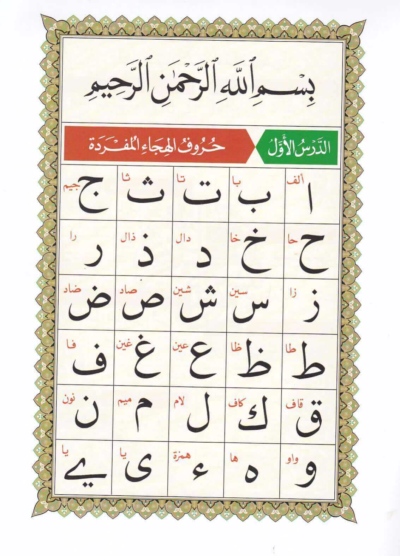 بِسْمِ ٱللَّهِ ٱلرَّحْمَٰنِ ٱلرَّحِيمِ
الدَّرْسُ الأَوَّل حُرُوفُ الهِجَاءِ المُفْرَدَة
ألف ا با ب تا ت ثا ث جيم ج
حا ح خا خ دال د ذال ذ را ر
زا ز سين س شين ش صاد ص ضاد ض
طا ط ظا ظ عين ع غين غ فا ف
قاف ق كاف ك لام ل ميم م نون ن
واو و ها ه همزة ء يا ى يا ے